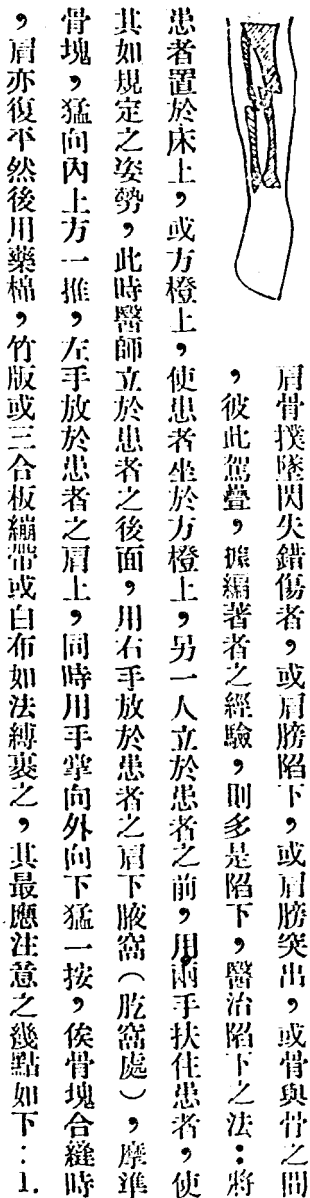 肩骨撲墜閃失錯傷者，或肩膀陷下，或肩膀突出，或骨與骨之間
，彼此駕疊，據編著者之經驗，則多是陷下，醫治陷下之法：將
患者置於床上，或方橙上，使患者坐於方橙上，另一人立於患者之前，用兩手扶住患者，使
其如規定之姿勢，此時醫師立於患者之後面，用右手放於患者之肩下腋窩（肐窩處），摩準
骨塊，猛向內上方一推，左手放於患者之肩上，同時用手掌向外向下猛一按，俟骨塊合縫時
，肩亦復平然後用藥棉，竹版或三合板繃帶或白布如法縛裹之，其最應注意之幾點如下：1.